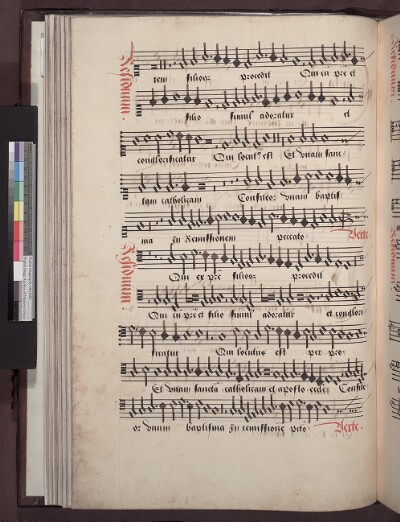 tem filioqz procedit Qui cu pre et
filio simul adoratur et
conglorificatur Qui locutus est Et unam sanc
tam catholicam Confiteor Unum baptis
ma In Remissionem peccato Verte.
Qui ex pre filioqz procedit
Qui cu pre et filio simul adoratur et conglori
ficatur Qui locutus est per pro
Et unam sancta catholicam et aposto Confite
or Unum baptisma In remissione peto Verte.